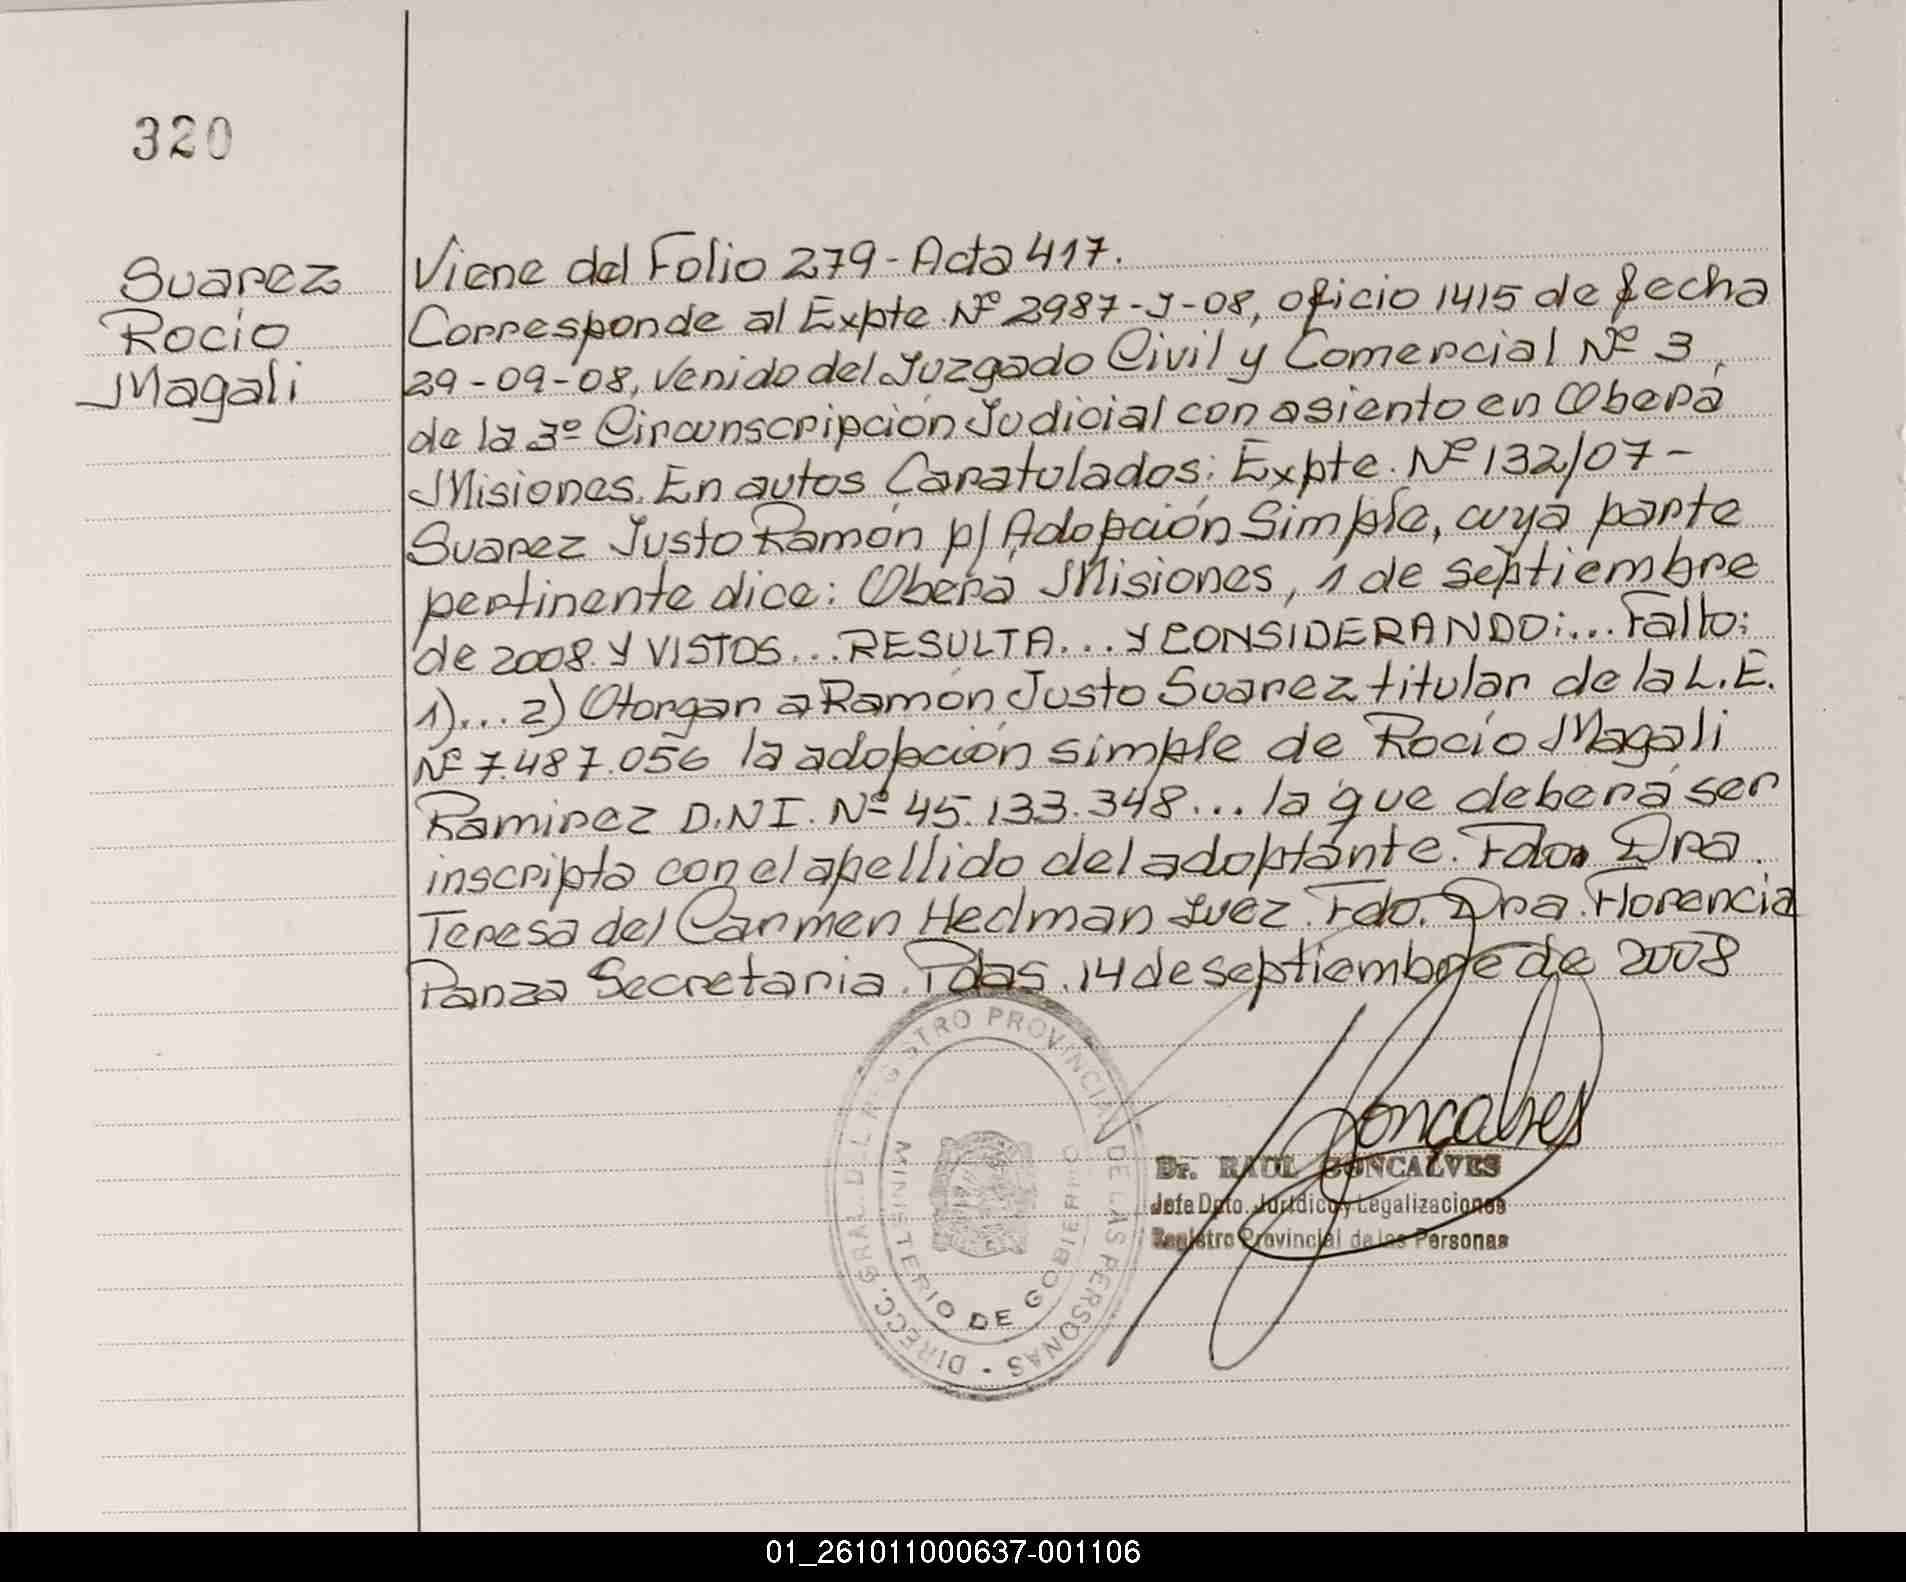 320
Suarez
Rocío
Magali
Viene del Folio 279 - Acta 417.
Corresponde al Expte. Nº 2987-J-08, oficio 1415 de fecha
29-09-08, venido del Juzgado Civil y Comercial Nº 3,
de la 3º Circunscripción Judicial con asiento en Oberá
Misiones. En autos Caratulados: Expte. Nº 132/07-
Suarez Justo Ramón p/ Adopción Simple, cuya parte
pertinente dice: Oberá Misiones, 1 de septiembre
de 2008. Y VISTOS... RESULTA... Y CONSIDERANDO:... Fallo:
1)... 2) Otorgar a Ramón Justo Suarez titular de la L.E.
Nº 7.487.056 la adopción simple de Rocío Magali
Ramirez D.N.I. Nº 45.133.348... la que deberá ser
inscripta con el apellido del adoptante. Fdo. Dra.
Teresa del Carmen Hedman Juez. Fdo. Dra. Florencia
Panza Secretaria. Pdas. 14 de septiembre de 2008
DIRECC. GRAL. DEL REGISTRO PROVINCIAL DE LAS PERSONAS
MINISTERIO DE GOBIERNO
Goncalves
Dr. RAUL GONCALVES
Jefe Dpto. Jurídico y Legalizaciones
Registro Provincial de las Personas
01_261011000637-001106